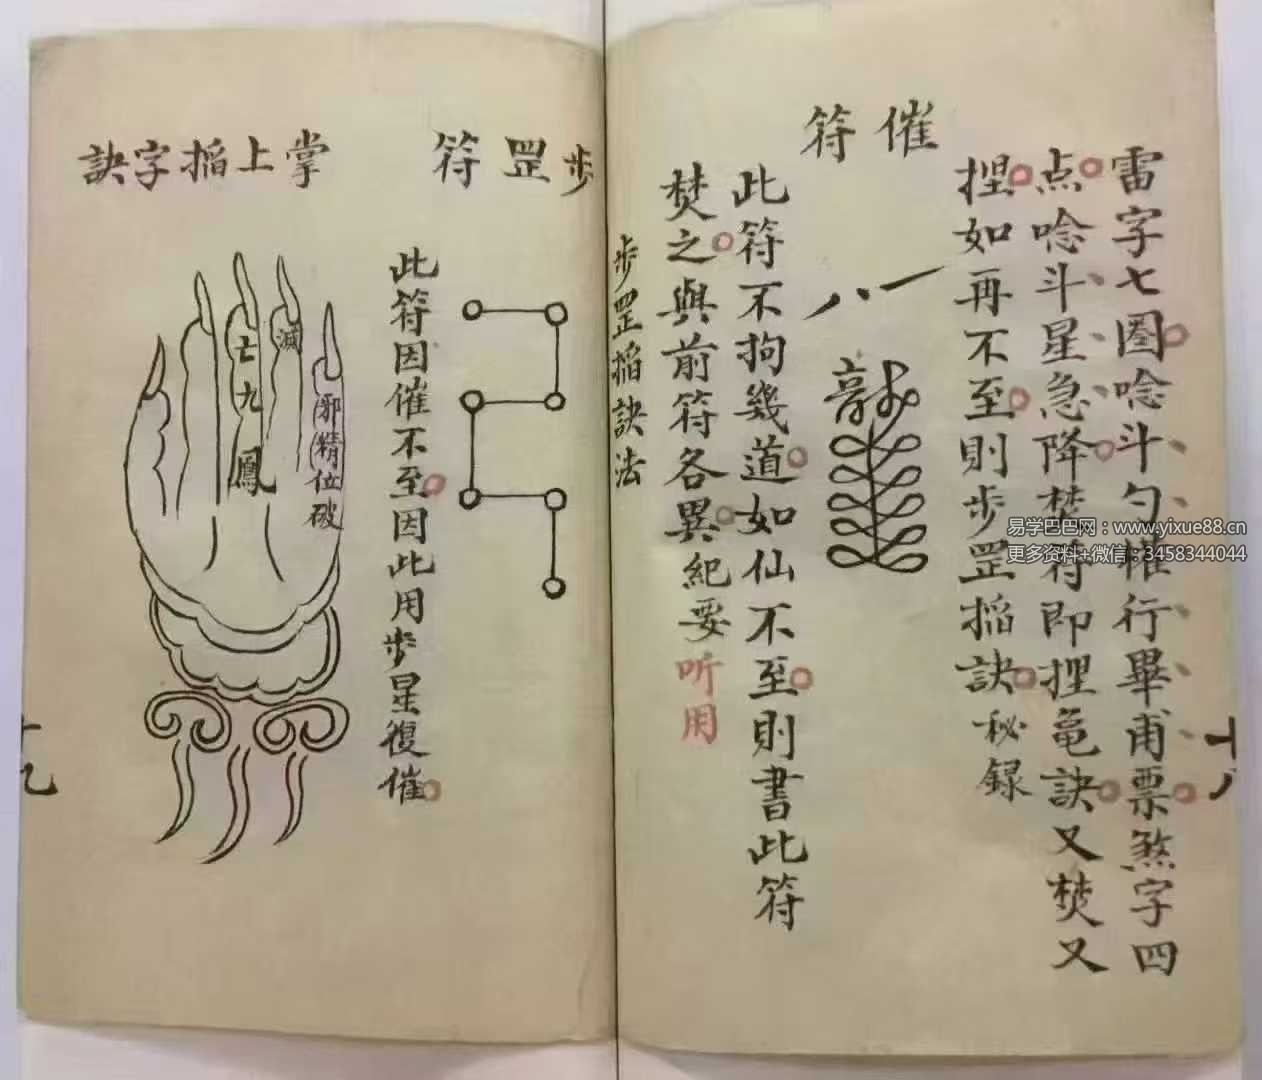 雷字七圈唸斗勺催行畢甫票煞字四
点唸斗星急降焚符即捏龟訣又焚又
捏如再不至則步罡搯訣秘録
催符
此符不拘幾道如仙不至則書此符
焚之與前符各異紀要听用
十八
步罡搯訣法
步罡符
此符因催不至因此用步星復催
掌上搯字訣
邪精位破
滅
亡九鳳
十九
易学巴巴网：www.yixue88.cn
更多资料+微信：3458344044